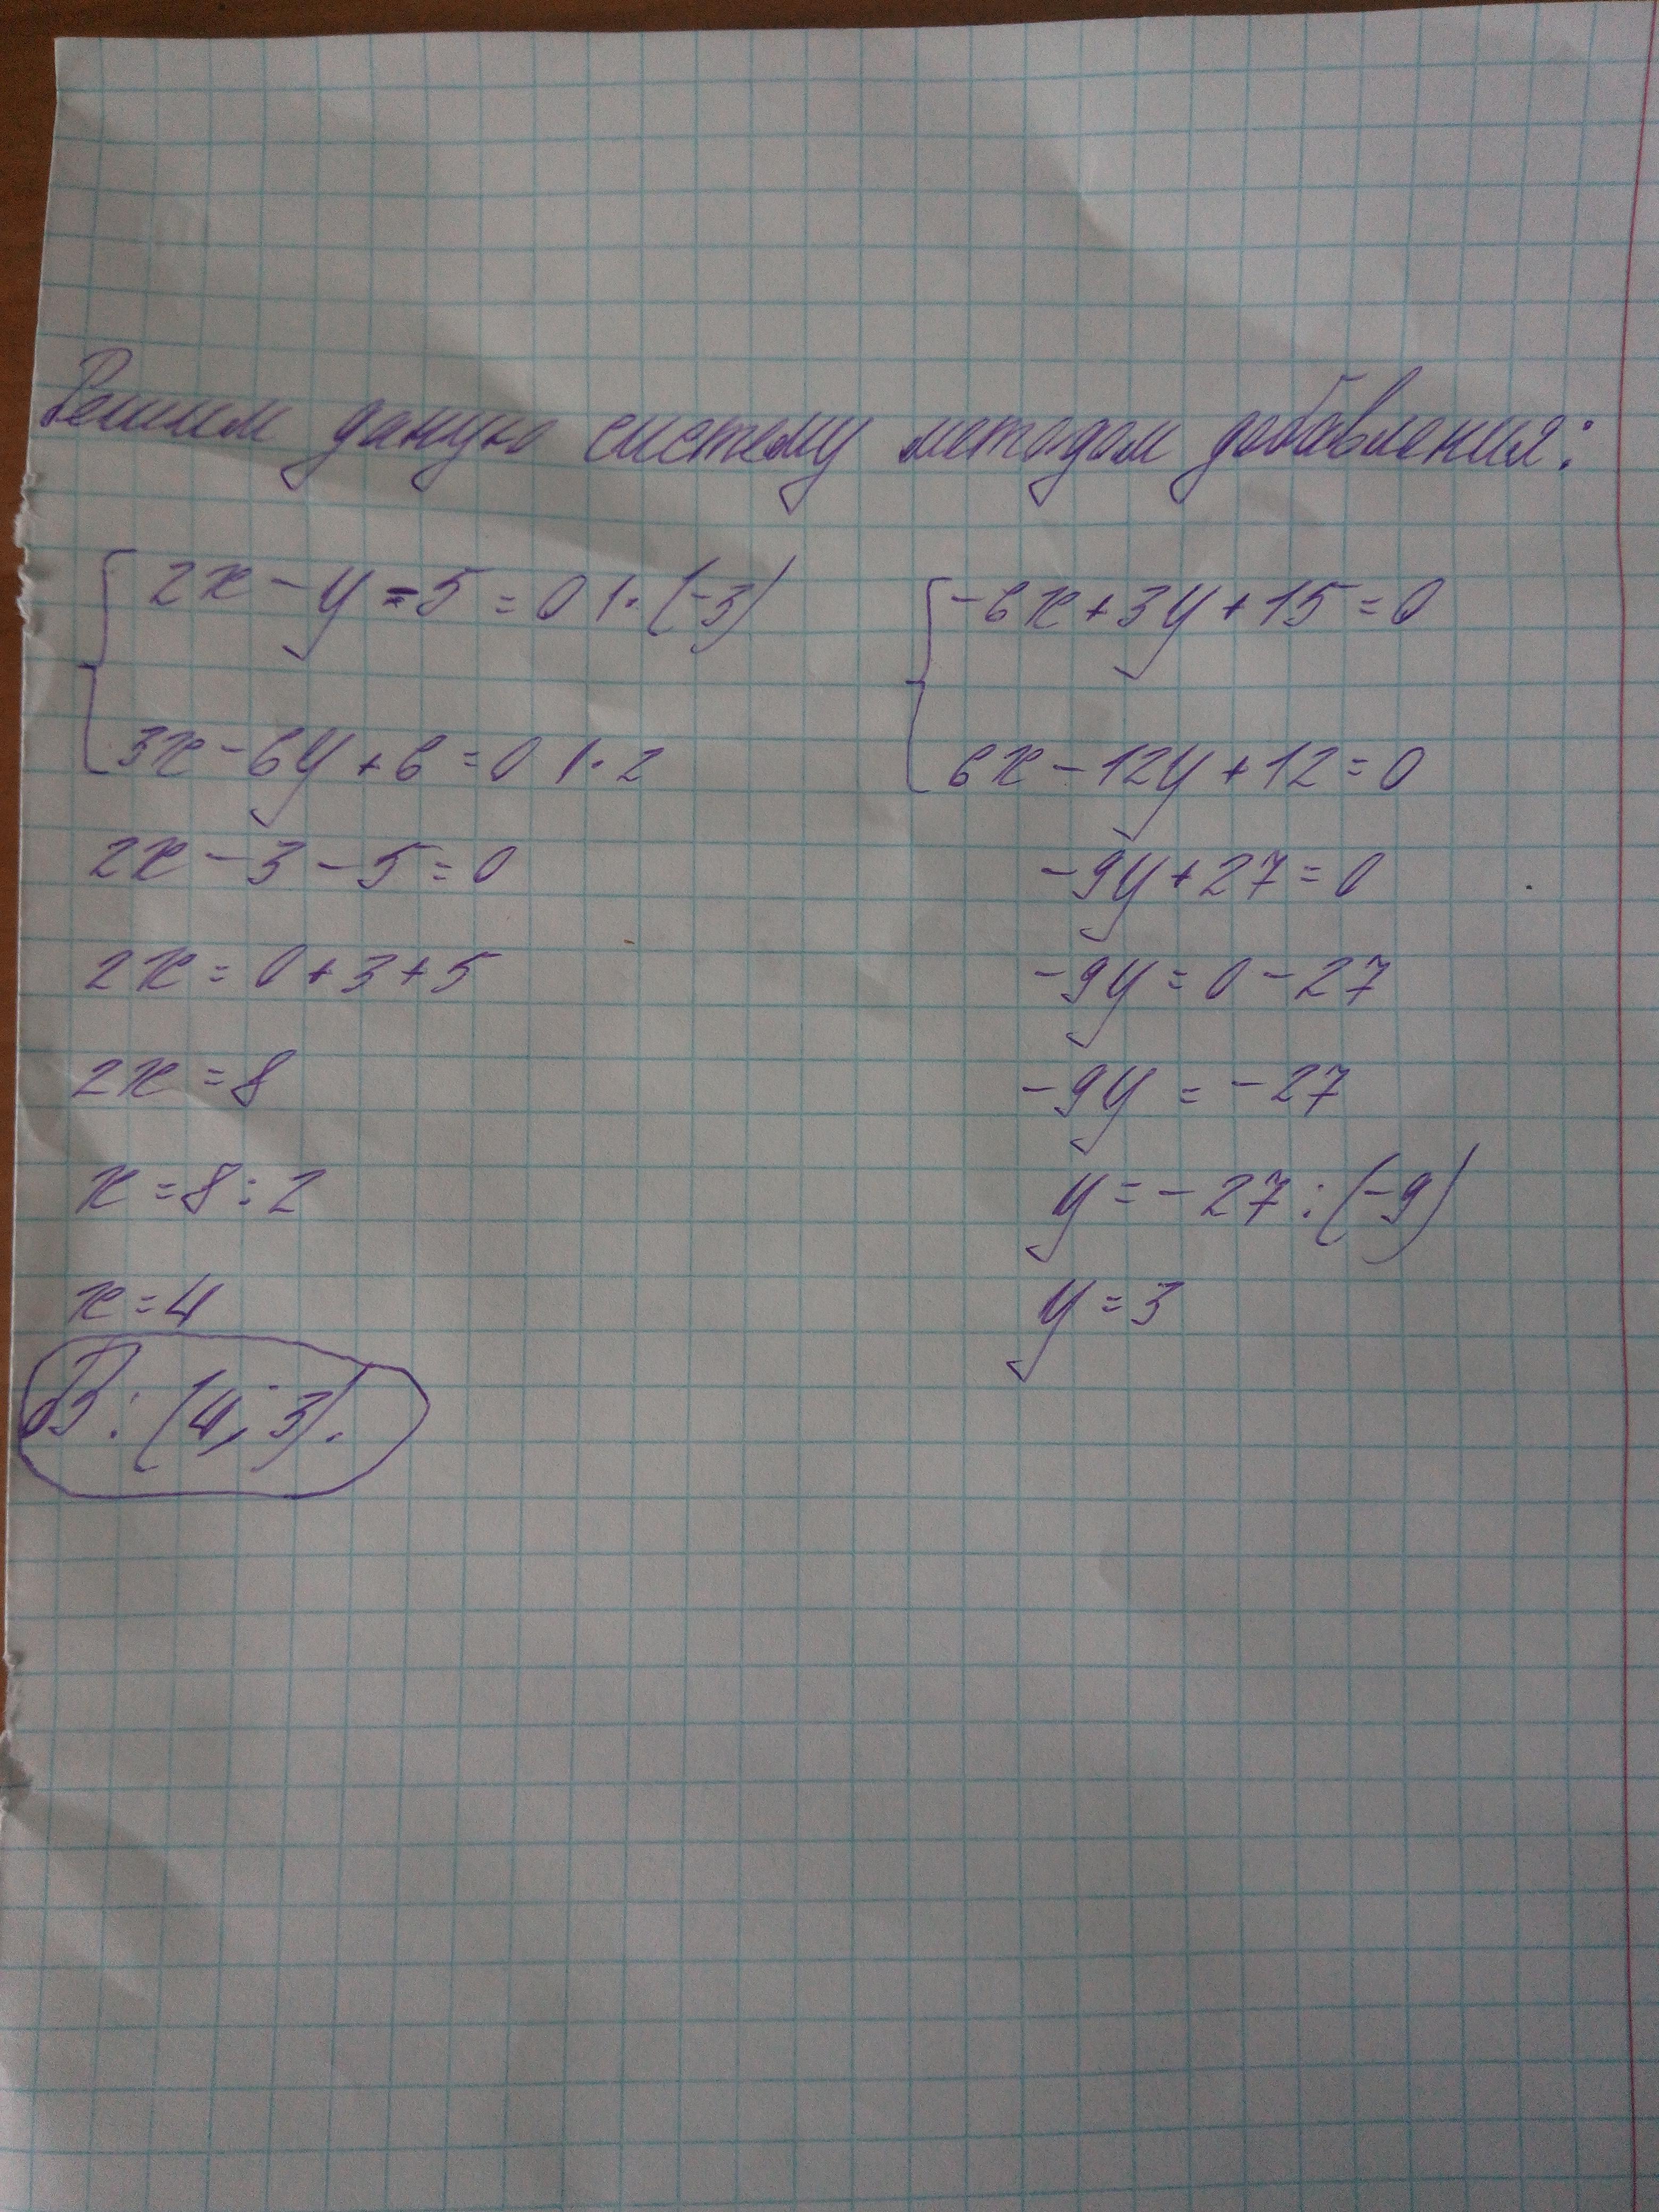 Решим даную систему методом добавления:
2x - y - 5 = 0 | · (-3)
3x - 6y + 6 = 0 | · 2
-6x + 3y + 15 = 0
6x - 12y + 12 = 0
-9y + 27 = 0
-9y = 0 - 27
-9y = -27
y = -27 : (-9)
y = 3
2x - 3 - 5 = 0
2x = 0 + 3 + 5
2x = 8
x = 8 : 2
x = 4
В: (4; 3).